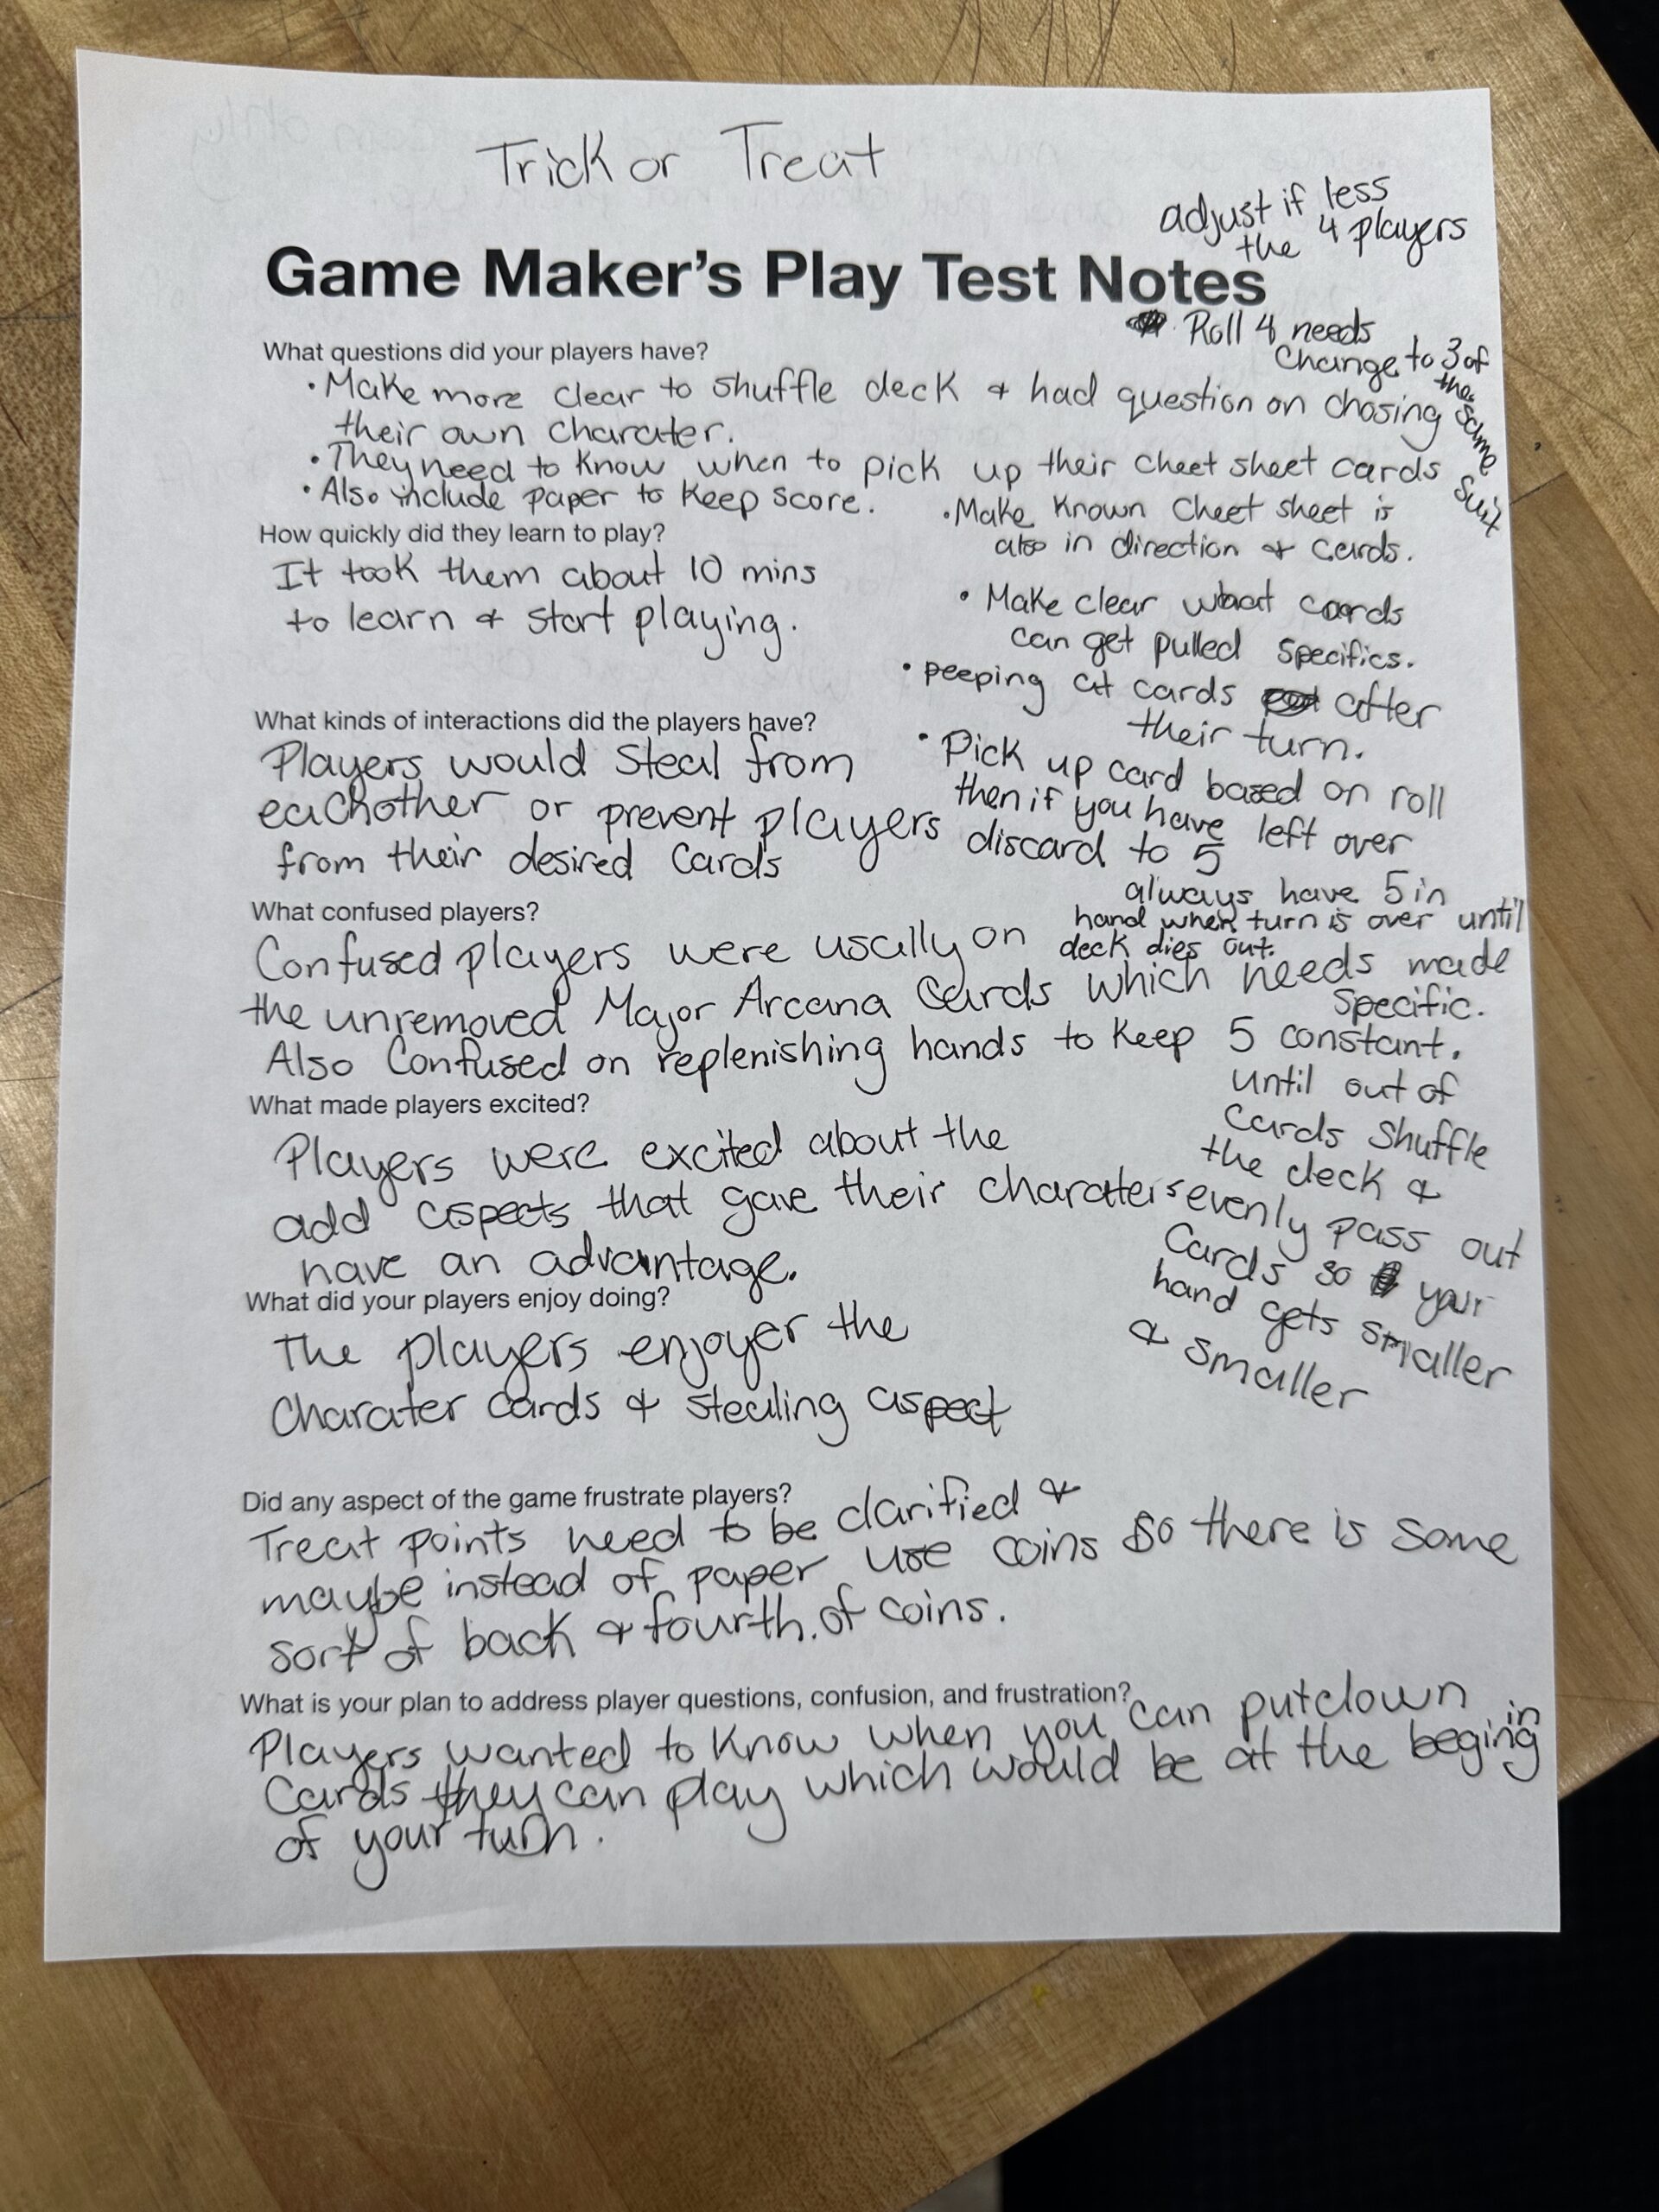 Trick or Treat
adjust if less
the 4 players
Game Maker's Play Test Notes
Roll 4 needs
Change to 3 of
the same
suit
What questions did your players have?
• Make more clear to shuffle deck & had question on chosing
their own charater.
• They need to know when to pick up their cheet sheet cards
• Also include paper to keep score.
• Make known cheet sheet is
also in direction & cards.
How quickly did they learn to play?
It took them about 10 mins
to learn & start playing.
• Make clear what cards
can get pulled specifics.
• peeping at cards after
their turn.
What kinds of interactions did the players have?
Players would steal from
eachother or prevent players
from their desired cards
• Pick up card based on roll
then if you have left over
discard to 5
always have 5 in
hand when turn is over until
deck dies out.
What confused players?
Confused players were usually on
the unremoved Major Arcana Cards which needs made
specific.
Also confused on replenishing hands to keep 5 constant.
until out of
cards shuffle
the deck &
evenly pass out
cards so your
hand gets smaller
& smaller
What made players excited?
Players were excited about the
add aspects that gave their charaters
have an advantage.
What did your players enjoy doing?
The players enjoyer the
Charater cards & stealing aspect
Did any aspect of the game frustrate players?
Treat points need to be clarified &
maybe instead of paper use coins so there is some
sort of back & fourth of coins.
What is your plan to address player questions, confusion, and frustration?
Players wanted to know when you can putdown
Cards they can play which would be at the begining
of your turn.